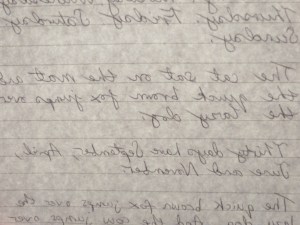 Wednesday
Thursday Friday Saturday
Sunday
The cat sat on the mat and
the quick brown fox jumps over
the lazy dog
Thirty days have September, April,
June and November
The quick brown fox jumps over the
lazy dog And the cow jumps over